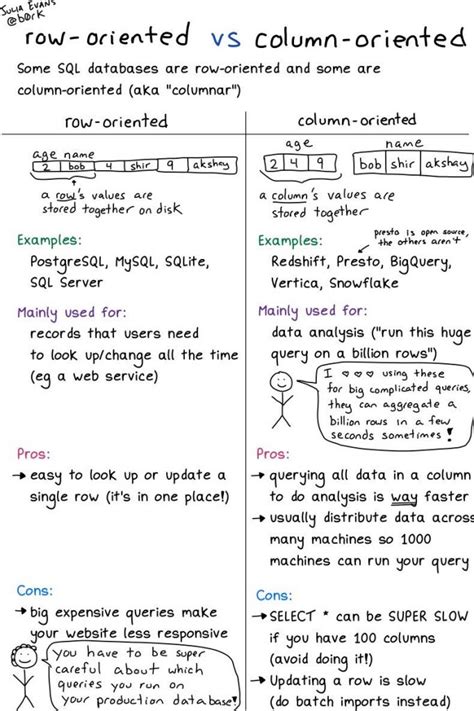 JULIA EVANS
@b0rk
row-oriented vs column-oriented
Some SQL databases are row-oriented and some are
column-oriented (aka "columnar")
row-oriented
age name
2 bob 4 shir 9 akshay
a row's values are
stored together on disk
Examples:
PostgreSQL, MySQL, SQLite,
SQL Server
Mainly used for:
records that users need
to look up/change all the time
(eg a web service)
Pros:
→ easy to look up or update a
single row (it's in one place!)
Cons:
→ big expensive queries make
your website less responsive
you have to be super
careful about which
queries you run on
your production database!
column-oriented
age
2 4 9
name
bob shir akshay
a column's values are
stored together
presto is open source,
the others aren't
Examples:
Redshift, Presto, BigQuery,
Vertica, Snowflake
Mainly used for:
data analysis ("run this huge
query on a billion rows")
I ♡ ♡ ♡ using these
for big complicated queries,
they can aggregate a
billion rows in a few
seconds sometimes!
Pros:
→ querying all data in a column
to do analysis is way faster
→ usually distribute data across
many machines so 1000
machines can run your query
Cons:
→ SELECT * can be SUPER SLOW
if you have 100 columns
(avoid doing it!)
→ Updating a row is slow
(do batch imports instead)